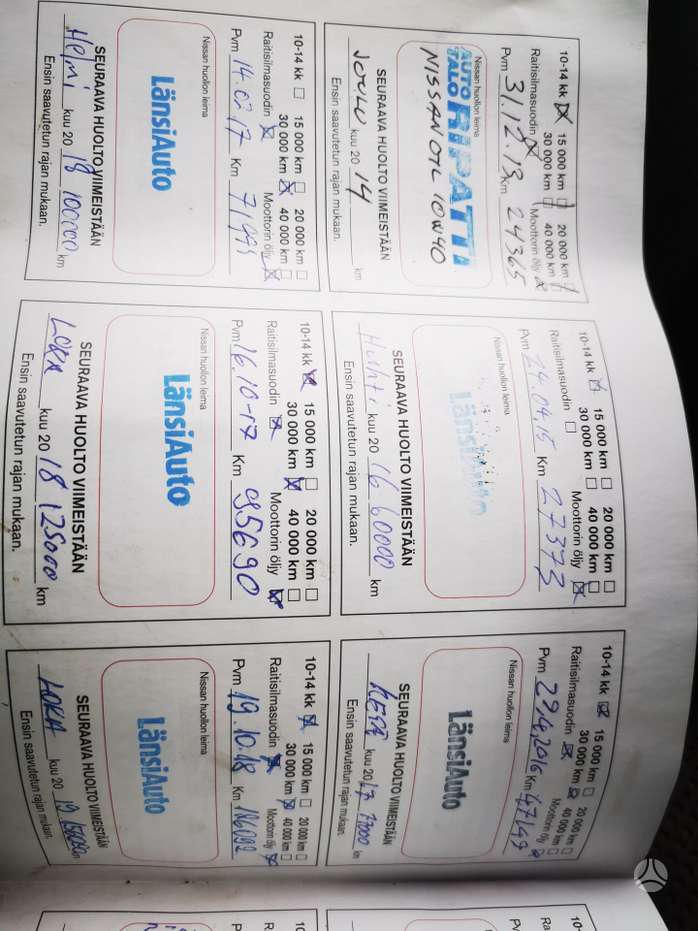 10-14 kk ☒ 15 000 km ☐ 20 000 km ☐
30 000 km ☐ 40 000 km ☐
Raitisilmasuodin ☒ Moottorin öljy ☒
Pvm 31.12.13 Km 24365
Nissan huollon leima
AUTO TALO RIPATTI
NISSAN OIL 10W40
SEURAAVA HUOLTO VIIMEISTÄÄN
JOULU kuu 20 14 km
Ensin saavutetun rajan mukaan.
10-14 kk ☒ 15 000 km ☐ 20 000 km ☐
30 000 km ☐ 40 000 km ☐
Raitisilmasuodin ☐ Moottorin öljy ☒
Pvm 24.04.15 Km 27373
Nissan huollon leima
LänsiAuto
SEURAAVA HUOLTO VIIMEISTÄÄN
Huhti kuu 20 16 60000 km
Ensin saavutetun rajan mukaan.
10-14 kk ☒ 15 000 km ☐ 20 000 km ☐
30 000 km ☒ 40 000 km ☐
Raitisilmasuodin ☒ Moottorin öljy ☒
Pvm 29.4.2016 Km 47147
Nissan huollon leima
LänsiAuto
SEURAAVA HUOLTO VIIMEISTÄÄN
kuu 20 17 77000 km
Ensin saavutetun rajan mukaan.
10-14 kk ☐ 15 000 km ☐ 20 000 km ☐
30 000 km ☒ 40 000 km ☐
Raitisilmasuodin ☒ Moottorin öljy ☒
Pvm 14.02.17 Km 71993
Nissan huollon leima
LänsiAuto
SEURAAVA HUOLTO VIIMEISTÄÄN
Helmi kuu 20 18 100000 km
Ensin saavutetun rajan mukaan.
10-14 kk ☒ 15 000 km ☐ 20 000 km ☐
30 000 km ☒ 40 000 km ☐
Raitisilmasuodin ☒ Moottorin öljy ☒
Pvm 16.10-17 Km 95690
Nissan huollon leima
LänsiAuto
SEURAAVA HUOLTO VIIMEISTÄÄN
Loka kuu 20 18 125000 km
Ensin saavutetun rajan mukaan.
10-14 kk ☒ 15 000 km ☐ 20 000 km ☐
30 000 km ☒ 40 000 km ☐
Raitisilmasuodin ☒ Moottorin öljy ☒
Pvm 19.10.18 Km
Nissan huollon leima
LänsiAuto
SEURAAVA HUOLTO VIIMEISTÄÄN
LOKA kuu 20 19 km
Ensin saavutetun rajan mukaan.